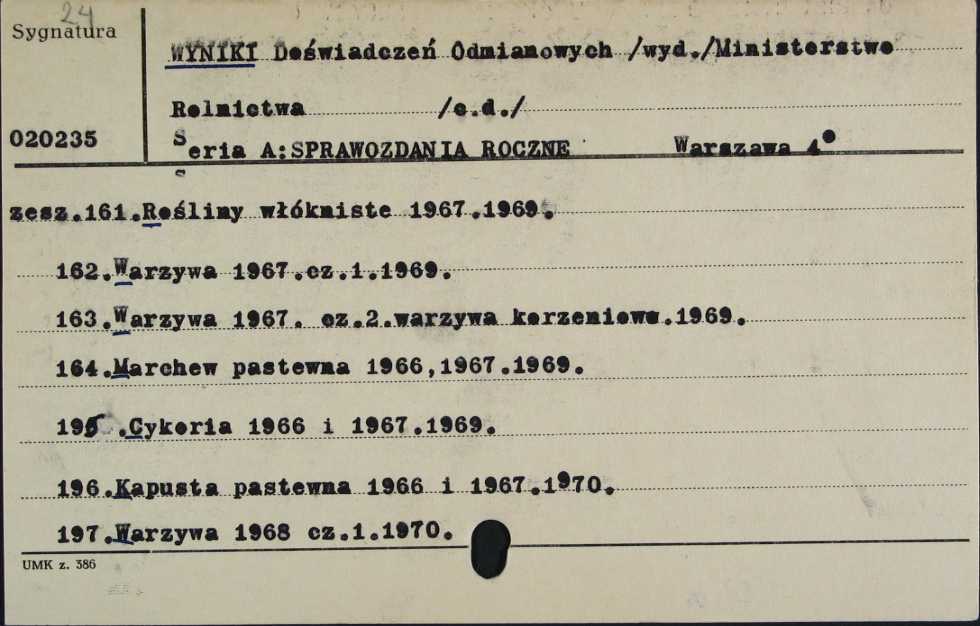 24
Sygnatura
WYNIKI Doświadczeń Odmianowych /wyd./Ministerstwo
Rolnictwa /c.d./
020235
Seria A:SPRAWOZDANIA ROCZNE Warszawa 4°
zesz.161.Rośliny włókniste 1967.1969.
162.Warzywa 1967.cz.1.1969.
163.Warzywa 1967. cz.2.warzywa korzeniowe.1969.
164.Marchew pastewna 1966,1967.1969.
195.Cykoria 1966 i 1967.1969.
196.Kapusta pastewna 1966 i 1967.1970.
197.Warzywa 1968 cz.1.1970.
UMK z. 386